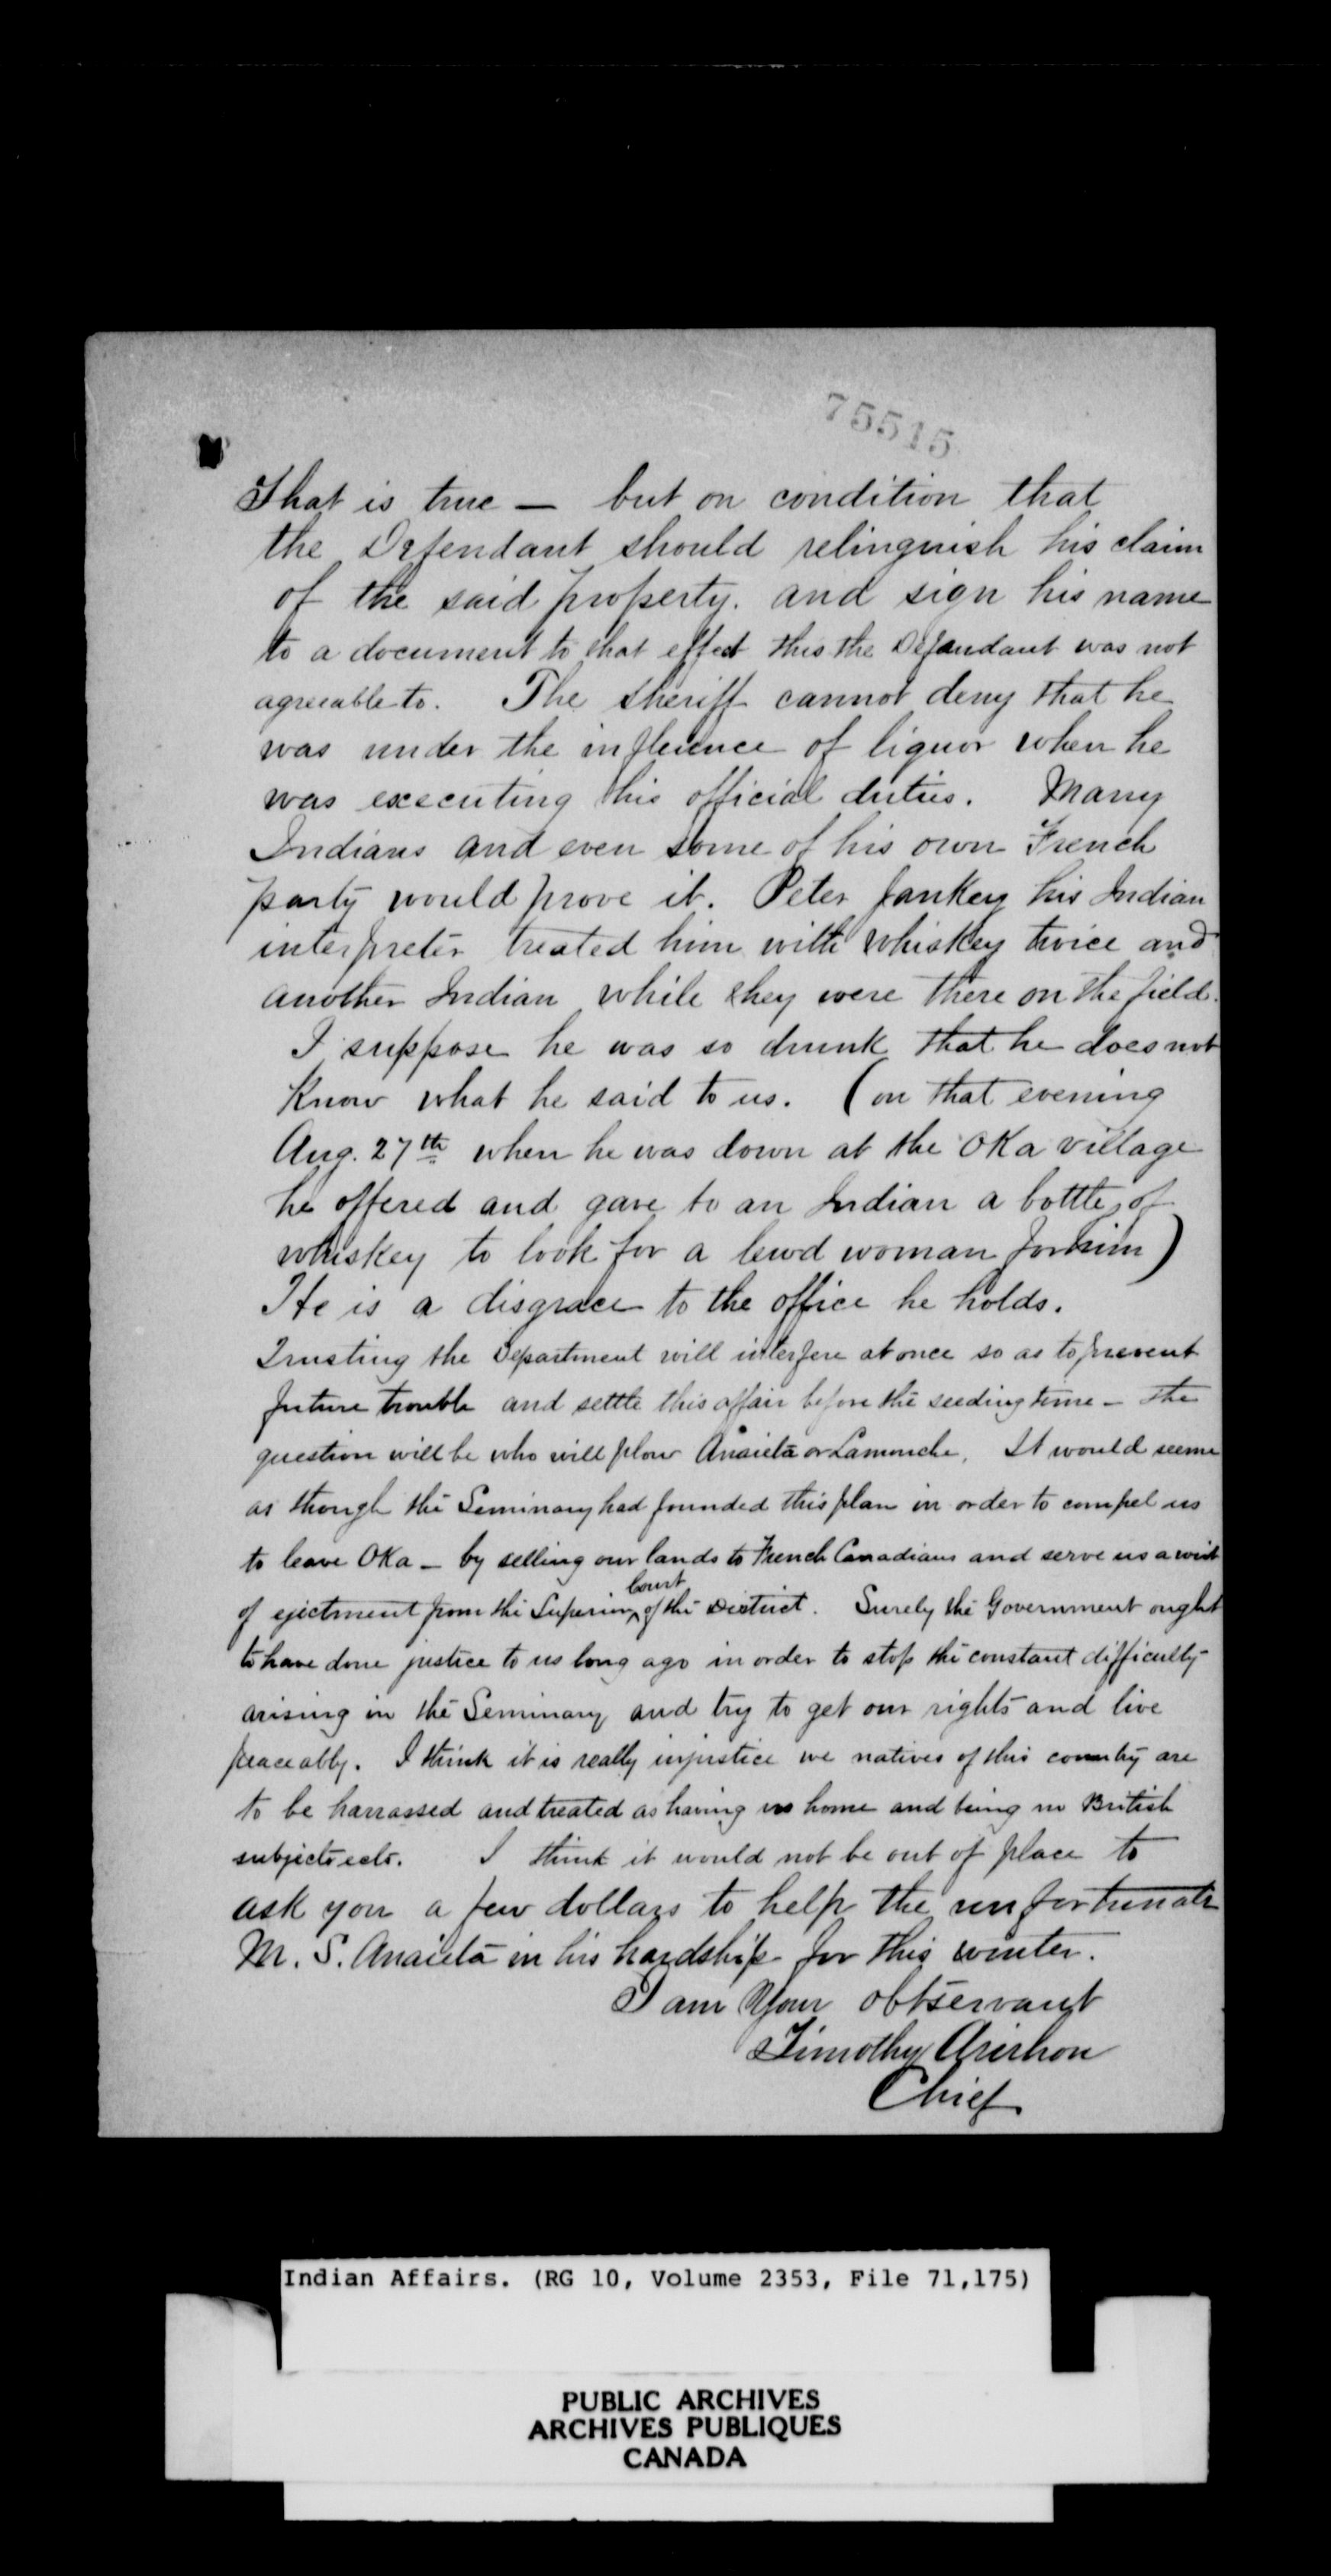 75515
That is true — but on condition that
the Defendant should relinquish his claim
of the said property. and sign his name
to a document to that effect this the Defendant was not
agreeable to. The sheriff cannot deny that he
was under the influence of liquor when he
was executing his official duties. Many
Indians and even some of his own French
party would prove it. Peter Jankey his Indian
interpreter treated him with whiskey twice and
another Indian while they were there on the field.
I suppose he was so drunk that he does not
know what he said to us. (on that evening
Aug. 27th when he was down at the Oka village
he offered and gave to an Indian a bottle of
whiskey to look for a lewd woman for him)
He is a disgrace to the office he holds.
Trusting the Department will interfere at once so as to prevent
future trouble and settle this affair before the seeding time – the
question will be who will plow Anaieta or Lamouche. It would seem
as though the Seminary had founded this plan in order to compel us
to leave Oka – by selling our lands to French Canadians and serve us a writ
of ejectment from the Superior Court of the District. Surely the Government ought
to have done justice to us long ago in order to stop the constant difficulty
arising in the Seminary and try to get our rights and live
peaceably. I think it is really injustice we natives of this country are
to be harrassed and treated as having no home and being no British
subjects ects. I think it would not be out of place to
ask you a few dollars to help the unfortunate
M. S. Anaieta in his hardship for this winter.
I am Your obtservant
Timothy Arirhon
Chief
Indian Affairs. (RG 10, Volume 2353, File 71,175)
PUBLIC ARCHIVES
ARCHIVES PUBLIQUES
CANADA